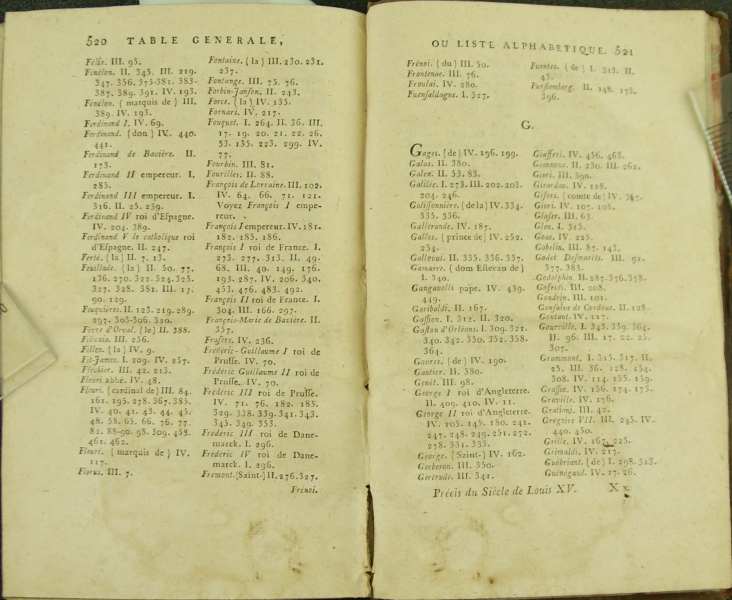 520 TABLE GENERALE,
Félix. III. 95.
Fénélon. II. 345. III. 219.
347. 356. 375-381. 383-
387. 389. 391. IV. 193.
Fénélon. (marquis de) III.
389. IV. 193.
Ferdinand I. IV. 69.
Ferdinand. (don) IV. 440.
441.
Ferdinand de Baviére. II.
173.
Ferdinand II empereur. I.
285.
Ferdinand III empereur. I.
316. II. 25. 239.
Ferdinand IV roi d'Espagne.
IV. 204. 389.
Ferdinand V le catholique roi
d'Espagne. II. 247.
Ferté. (la) II. 7. 13.
Feuillade. (la) II. 50. 77.
136. 270. 322. 324. 325.
327. 328. 381. III. 17.
90. 129.
Feuquieres. II. 123. 219. 289.
297. 303-306. 320.
Fieve d'Orval. (le) II. 388.
Filicaia. III. 256.
Fillon. (la) IV. 9.
Fit-James. I. 209. IV. 257.
Fléchier. III. 42. 213.
Fleuri abbé. IV. 48.
Fleuri. (cardinal de) III. 84.
161. 195. 278. 367. 385.
IV. 40. 41. 43. 44. 45.
48. 58. 65. 66. 76. 77.
82. 88-90. 98. 309. 458.
461. 462.
Fleuri. (marquis de) IV.
117.
Florus. III. 7.
Fontaine. (la) III. 230. 231.
237.
Fontange. III. 75. 76.
Forbin-Janson. II. 243.
Force. (la) IV. 135.
Fornari. IV. 217.
Fouquet. I. 264. II. 36. III.
17. 19. 20. 21. 22. 26.
53. 135. 223. 299. IV.
77.
Fourbin. III. 81.
Fourilles. II. 88.
François de Lorraine. III. 102.
IV. 64. 66. 71. 121.
Voyez François I empe-
reur.
François I empereur. IV. 181.
182. 185. 186.
François I roi de France. I.
273. 277. 313. II. 49-
68. III. 40. 149. 176.
193. 287. IV. 206. 340.
453. 476. 483. 492.
François II roi de France. I.
304. III. 166. 297.
François-Marie de Baviere. II.
357.
Frasers. IV. 236.
Fréderic-Guillaume I roi de
Prusse. IV. 70.
Fréderic Guillaume II roi de
Prusse. IV. 70.
Fréderic III roi de Prusse.
IV. 71. 76. 182. 185.
329. 338. 339. 341. 343.
345. 349. 353.
Fréderic III roi de Dane-
marck. I. 296.
Fréderic IV roi de Dane-
marck. I. 296.
Fremont. (Saint-) II. 276. 327.
Frénoi.
OU LISTE ALPHABETIQUE. 521
Frénoi. (du) III. 50.
Frontenac. III. 76.
Froulai. IV. 280.
Fuensaldagne. I. 317.
Fuentes. (de) I. 313. II.
45.
Furstemberg. II. 148. 178.
396.
G.
Gages. (de) IV. 196. 199.
Galas. II. 380.
Galen. II. 53. 83.
Galilée. I. 273. III. 202. 203.
204. 246.
Galissonniére. (de la) IV. 334.
335. 336.
Gallerande. IV. 187.
Galles. (prince de) IV. 252.
254.
Galloway. II. 335. 336. 337.
Gamarre. (dom Estevan de)
I. 340.
Ganganelli pape. IV. 439.
449.
Garibaldi. II. 167.
Gassion. I. 312. II. 320.
Gaston d'Orléans. I. 309. 321.
340. 342. 350. 352. 358.
364.
Gautier. II. 380.
Genêt. III. 98.
George I roi d'Angleterre.
II. 409. 410. IV. 11.
George II roi d'Angleterre.
IV. 105. 145. 180. 241.
247. 248. 249. 251. 272.
278. 331. 335.
George. (Saint-) IV. 162.
Gerberon. III. 350.
Gertrude. III. 341.
Giafferi. IV. 456. 463.
Gionneus. II. 230. III. 262.
Giori. III. 390.
Girardou. IV. 118.
Gisors. (comte de) IV. 347.
Givri. IV. 107. 108.
Glaser. III. 63.
Glen. I. 315.
Goas. IV. 225.
Gobelin. III. 87. 143.
Godet Desmarets. III. 91.
377. 385.
Godolphin II. 287. 376. 378.
Gofridi. III. 208.
Gondrin. III. 101.
Gonsalve de Cordoue. II. 128
Gontaut. IV. 117.
Gourville. I. 345. 359. 364.
II. 96. III. 17. 22. 25.
307.
Grammont. I. 315. 317. II.
25. III. 36. 128. 154.
308. IV. 114. 155. 159.
Grassin. IV. 156. 174. 175.
Graville. IV. 176.
Gratiani. III. 42.
Grégoire VII. III. 245. IV.
440. 450.
Grille. IV. 167. 225.
Grimaldi. IV. 217.
Guébriant. (de) I. 298. 313.
Guénégaud. IV. 17. 26.
Précis du Siècle de Louis XV. X x